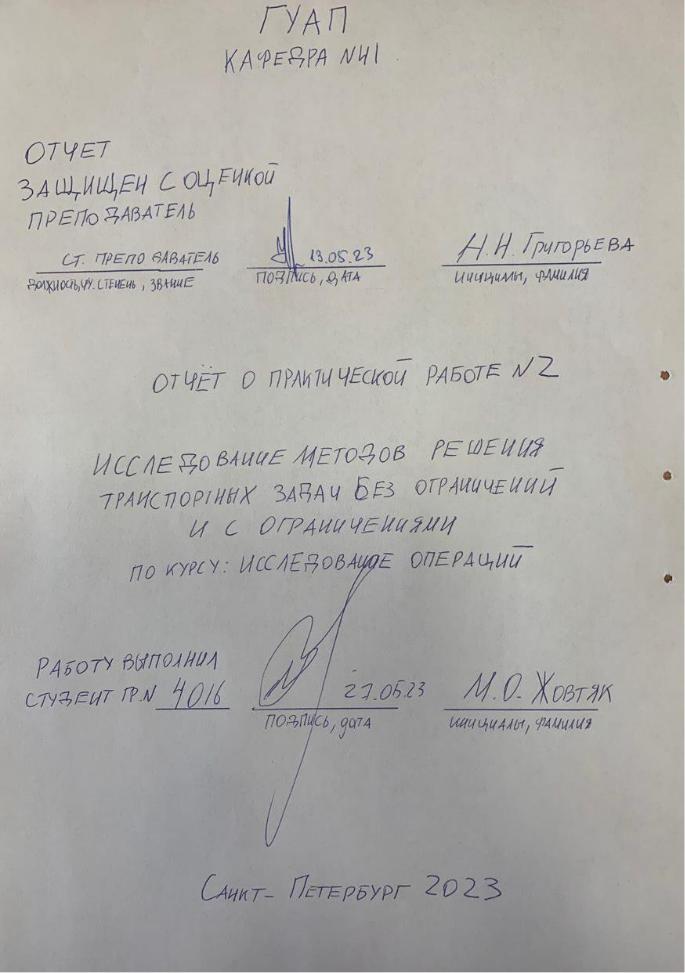 ГУАП
КАФЕДРА N41
ОТЧЕТ
ЗАЩИЩЕН С ОЦЕНКОЙ
ПРЕПОДАВАТЕЛЬ
СТ. ПРЕПОДАВАТЕЛЬ 13.05.23 Н.Н. Григорьева
ДОЛЖНОСТЬ, УЧ. СТЕПЕНЬ, ЗВАНИЕ ПОДПИСЬ, ДАТА ИНИЦИАЛЫ, ФАМИЛИЯ
ОТЧЁТ О ПРАКТИЧЕСКОЙ РАБОТЕ N2
ИССЛЕДОВАНИЕ МЕТОДОВ РЕШЕНИЯ
ТРАНСПОРТНЫХ ЗАДАЧ БЕЗ ОГРАНИЧЕНИЙ
И С ОГРАНИЧЕНИЯМИ
ПО КУРСУ: ИССЛЕДОВАНИЕ ОПЕРАЦИЙ
РАБОТУ ВЫПОЛНИЛ
СТУДЕНТ ГР.N 4016 21.05.23 М.О. Жовтяк
ПОДПИСЬ, дата ИНИЦИАЛЫ, ФАМИЛИЯ
Санкт-Петербург 2023